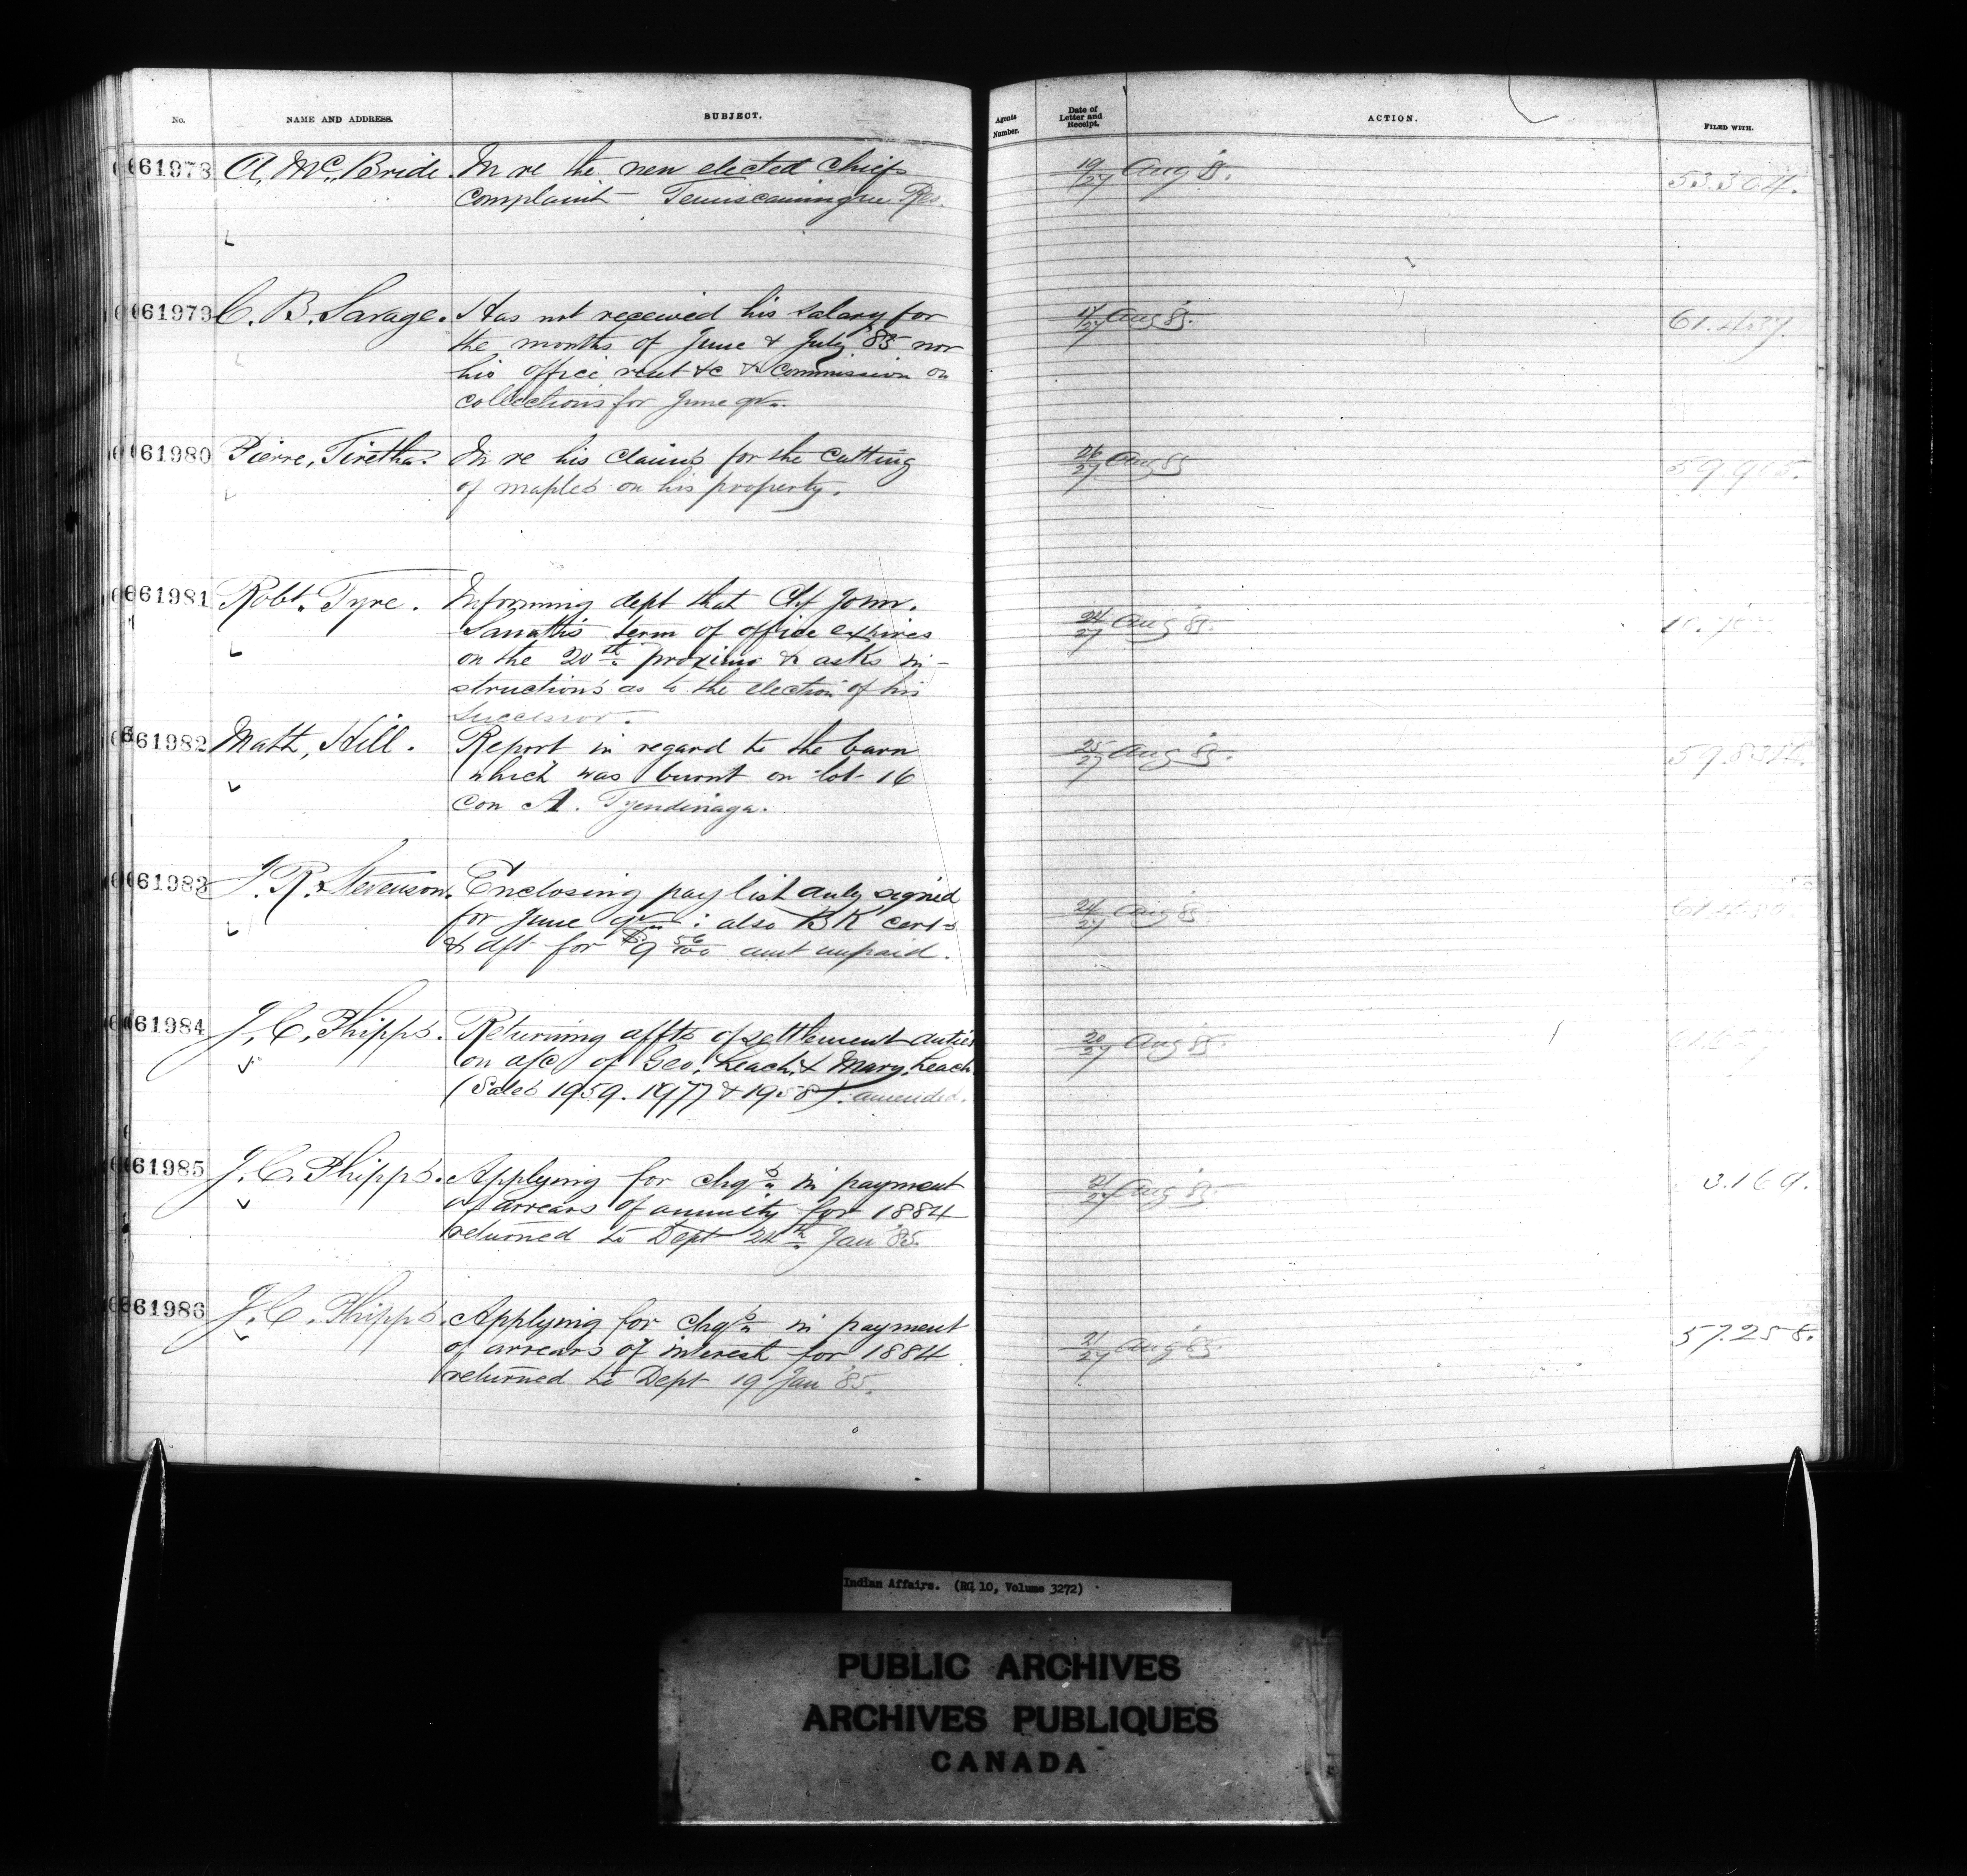 No. NAME AND ADDRESS. SUBJECT. Agents Number. Date of Letter and Receipt. ACTION. FILED WITH.
61978 A. McBride. In re the new elected Chiefs 19/27 Aug 85. 53.304.
complaint Temiscamingue Res.
61979 C. B. Savage. Has not received his salary for 17/27 Aug 85. 61.437.
the months of June & July '85 nor
his office rent &c & commission on
collections for June qr.
61980 Pierre, Tiretha. In re his claims for the cutting 26/27 Aug 85 59.965.
of maples on his property.
61981 Robt. Tyre. Informing dept that Chf John. 24/27 Aug 85.
term of office expires
on the 20th proximo & asks in-
structions as to the election of his
successor.
61982 Matt, Hill. Report in regard to the barn 25/27 Aug 85.
which was burnt on lot 16
con A. Tyendinaga.
61983 J. R. Stevenson. Enclosing pay list duly signed 24/27 Aug 85.
for June qr : also BK cert
& dft for $9 56/100 amt unpaid.
61984 J. C. Phipps. Returning affts of settlement duties 20/27 Aug 85.
on a/c of Geo, Leach & Mary, Leach
(Sales 1959. 1977 & 1958). amended.
61985 J. C. Phipps. Applying for chqs in payment 21/27 Aug 85. 3.169.
of arrears of annuity for 1884
returned to Dept 24th Jan '85.
61986 J. C. Phipps. Applying for chqs in payment 21/27 Aug 85. 57.258.
of arrears of interest for 1884
returned to Dept 19 Jan '85.
Indian Affairs. (RG 10, Volume 3272)
PUBLIC ARCHIVES
ARCHIVES PUBLIQUES
CANADA